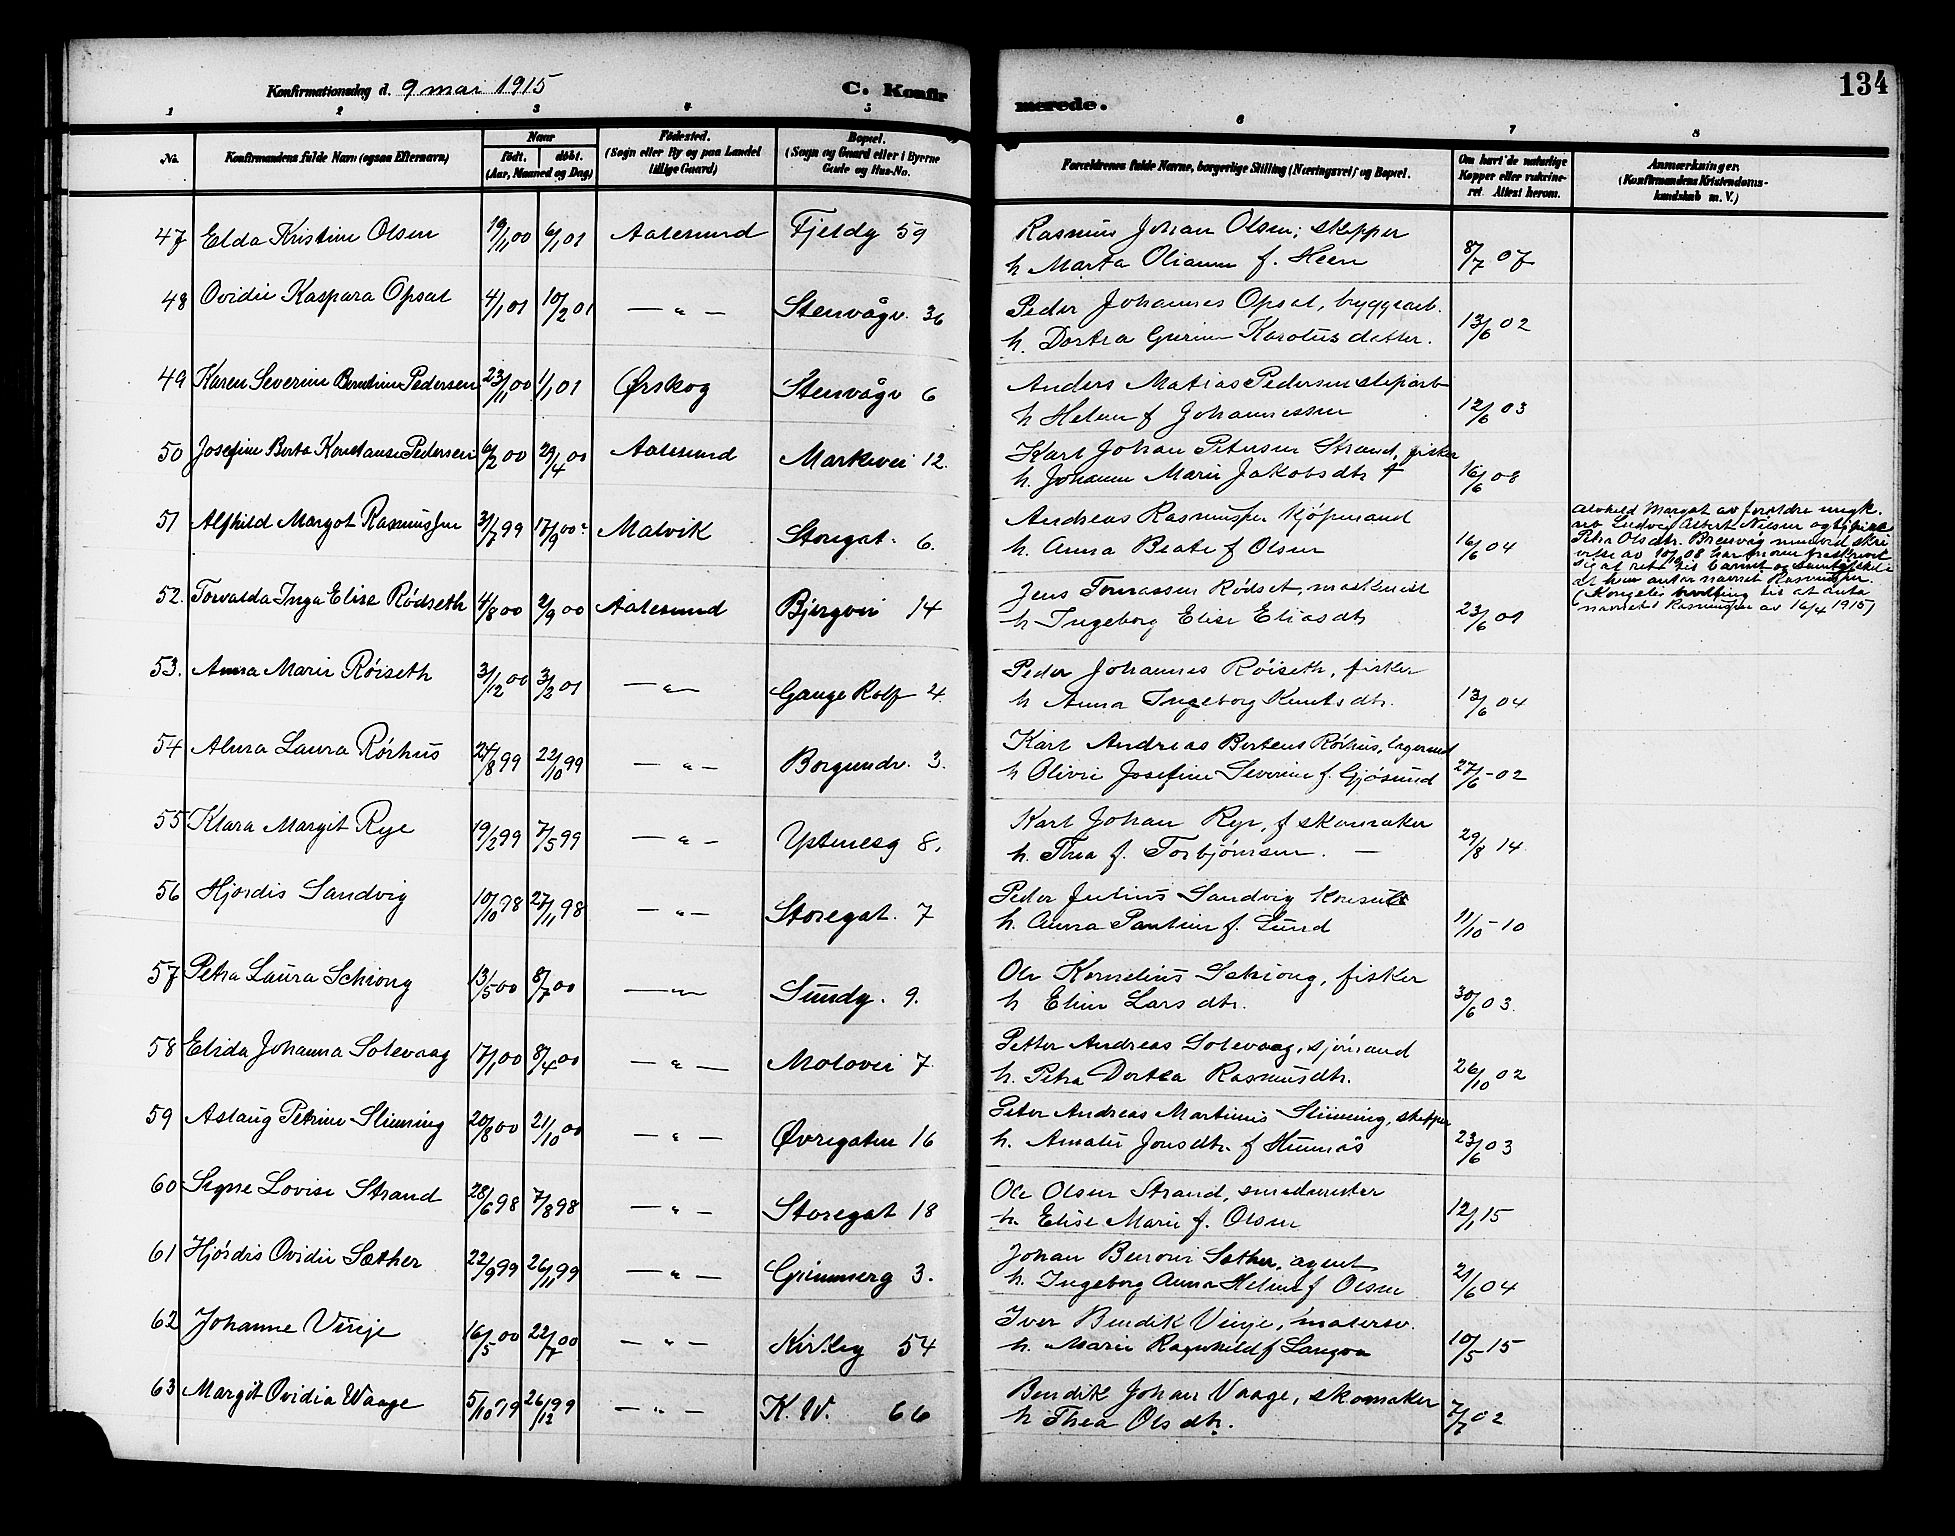 Konfirmationsdag d. 9 mai 1915
C. Konfirmerede.
134
1 2 3 4 5 6 7 8
No.
Konfirmandens fulde Navn (ogsaa Efternavn)
Naar
födt. döbt.
(Aar, Maaned og Dag)
Födested.
(Sogn eller By og paa Landet
tillige Gaard)
Bopæl.
(Sogn og Gaard eller i Byerne
Gade og Hus-No.
Forældrenes fulde Navne, borgerlige Stilling (Næringsvei) og Bopæl.
Om havt de naturlige
Kopper eller vakcine-
ret. Attest herom.
Anmærkninger.
(Konfirmandens Kristendoms-
kundskab m. V.)
47 Elda Kristine Olsen 19/1 00 6/1 01 Aalesund Fjeldg 59 Rasmus Johan Olsen, skipper 8/7 07
h Marta Olianne f. Heen
48 Ovidie Kaspara Opsal 4/1 01 10/2 01 — " — Stenvågv. 36 Peder Johannes Opsal, byggearb. 13/6 02
h. Dortea Gurine Karolusdatter.
49 Karen Severine Berntine Pedersen 23/11 00 1/1 01 Ørskog Stenvågv 6 Anders Matias Pedersen sliparb 12/6 03
h Helene f Johannessen
50 Josefine Berta Konstanse Pedersen 6/2 00 29/4 00 Aalesund Markevei 12. Karl Johan Petersen Strand, fisker 16/6 08
h. Johanne Marie Jakobsdtr †
51 Alfhild Margot Rasmussen 31/7 99 17/9 00 Malvik Storegat. 6. Andreas Rasmussen kjöpmand 16/6 04
h. Anna Beate f Olsen
Alvhild Margot av foreldre ungk.
Ludvig Albert Nilsen og
Petra Olsdtr. Brensvåg ved skri
velse av 10/9 08 har moren fraskrevet
sig al ret til barnet og samtykket i
at hun antar navnet Rasmussen.
(Kongelig bevilling til at anta
navnet Rasmussen av 16/4 1915)
52. Torvalda Inga Elise Rödseth 4/8 00 2/9 00 Aalesund Bjergvei 14 Jens Tomassen Rödset, maskinist 23/6 01
h Ingeborg Elise Eliasdtr
53. Anna Marie Röiseth 31/12 00 3/2 01 — " — Gange Rolf 4. Peder Johannes Röiseth, fisker 13/6 04
h Anna Ingeborg Knutsdtr.
54 Alma Laura Rörhus 24/8 99 22/10 99 — " — Borgundv. 3. Karl Andreas Bertens Rörhus, lagermd 27/6 - 02
h Olivie Josefine Severine f. Gjösund
55 Klara Margit Rye 19/2 99 7/5 99 — " — Ystenesg 8. Karl Johan Rye, f skomaker 29/8 14
h. Thea f. Torbjörnsen. —
56 Hjördis Sandvig 10/10 98 27/11 98 — " — Storegat. 7 Peder Julius Sandvig konsul 11/10 - 10
h. Anna Pauline f. Lund
57 Petra Laura Schiong 13/5 00 8/7 00 — " — Sundg. 9. Ole Kornelius Schiong, fisker 30/6 03.
h Eline Larsdtr.
58 Elida Johanna Solevaag 17/1 00 8/4 00 — " — Molovei 7 Petter Andreas Solevaag, sjömand 26/10 02
h. Petra Dortea Rasmusdtr.
59 Aslaug Petrine Slinning 20/8 00 21/10 00 — " — Øvregaten 16 Peter Andreas Martinus Slinning, skipper 23/6 03
h. Amalie Jonsdtr. f Humnäs
60 Signe Lovise Strand 28/6 98 7/8 98 — " — Storegat 18 Ole Olsen Strand, smedmester 12/1 15
h. Elise Marie f. Olsen
61 Hjördis Ovidie Sæther 22/9 99 26/11 99 — " — Grimmerg 3. Johan Bernoni Sæther, agent 21/6 04
h. Ingeborg Anna Helene f Olsen
62 Johanne Vinje 16/5 00 22/7 00 — " — Kirkeg 54 Iver Bendik Vinje, malersv. 10/5 15
h. Marie Ragnhild f Langva
63 Margit Ovidia Waage 5/10 99 26/12 99 — " — K. W. 66 Bendik Johan Vaage, skomaker 7/7 02
h Thea Olsdtr.